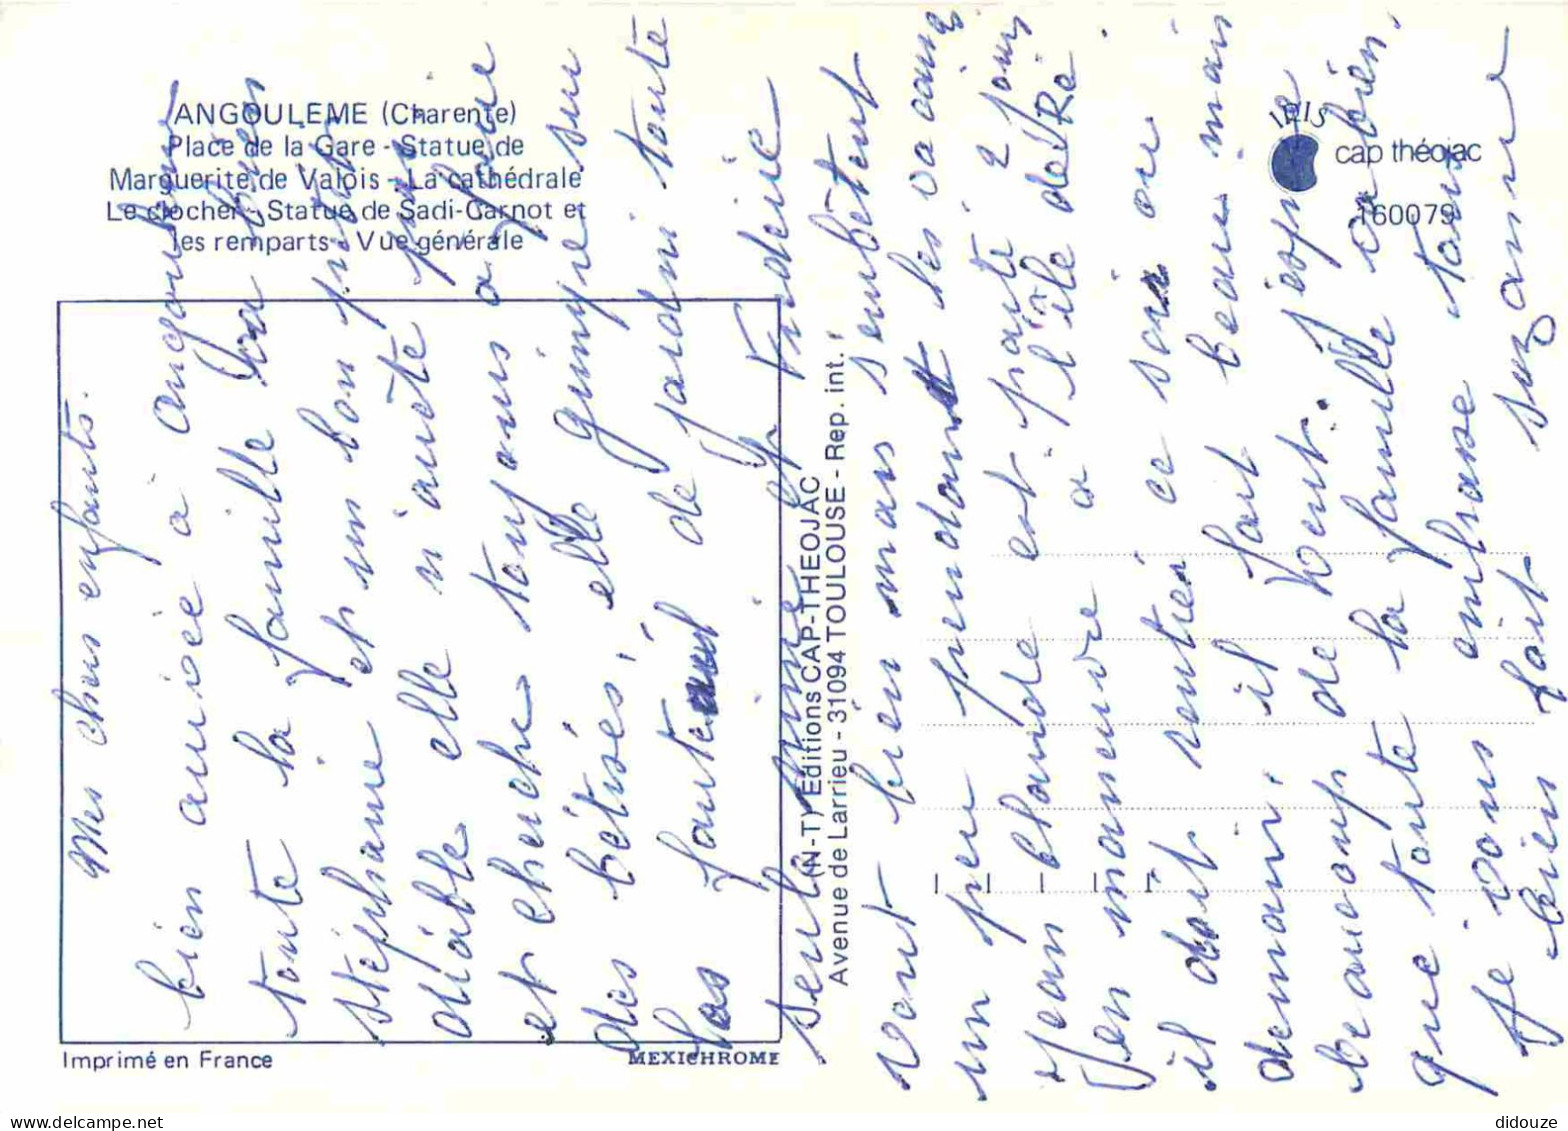 ANGOULEME (Charente)
Place de la Gare - Statue de
Marguerite de Valois - La cathédrale
Le clocher - Statue de Sadi-Carnot et
les remparts - Vue générale
IRIS
cap théojac
160079
Imprimé en France
MEXICHROME
(N-T) Editions CAP-THEOJAC
Avenue de Larrieu - 31094 TOULOUSE - Rep. int.
Mes chers enfants.
bien arrivée à angoulême
toute la famille va bien
stéphanie est un bon petit
diable elle n'arrête pas
et cherche toujours a faire
des bétisés, elle grimpe sur
las fauteuil de jardin toute
seule
vont bien mais sembêtent
un peu pendant les vacances
Jean Claude est parté 2 jours
en manœuvre a l'île de Ré
il doit rentier ce soir ou
demain, il fait beau mais
beaucoup de vent. j'espère
que toute la famille va bien,
je vous embrase tous
bien fait suzanne
didouze